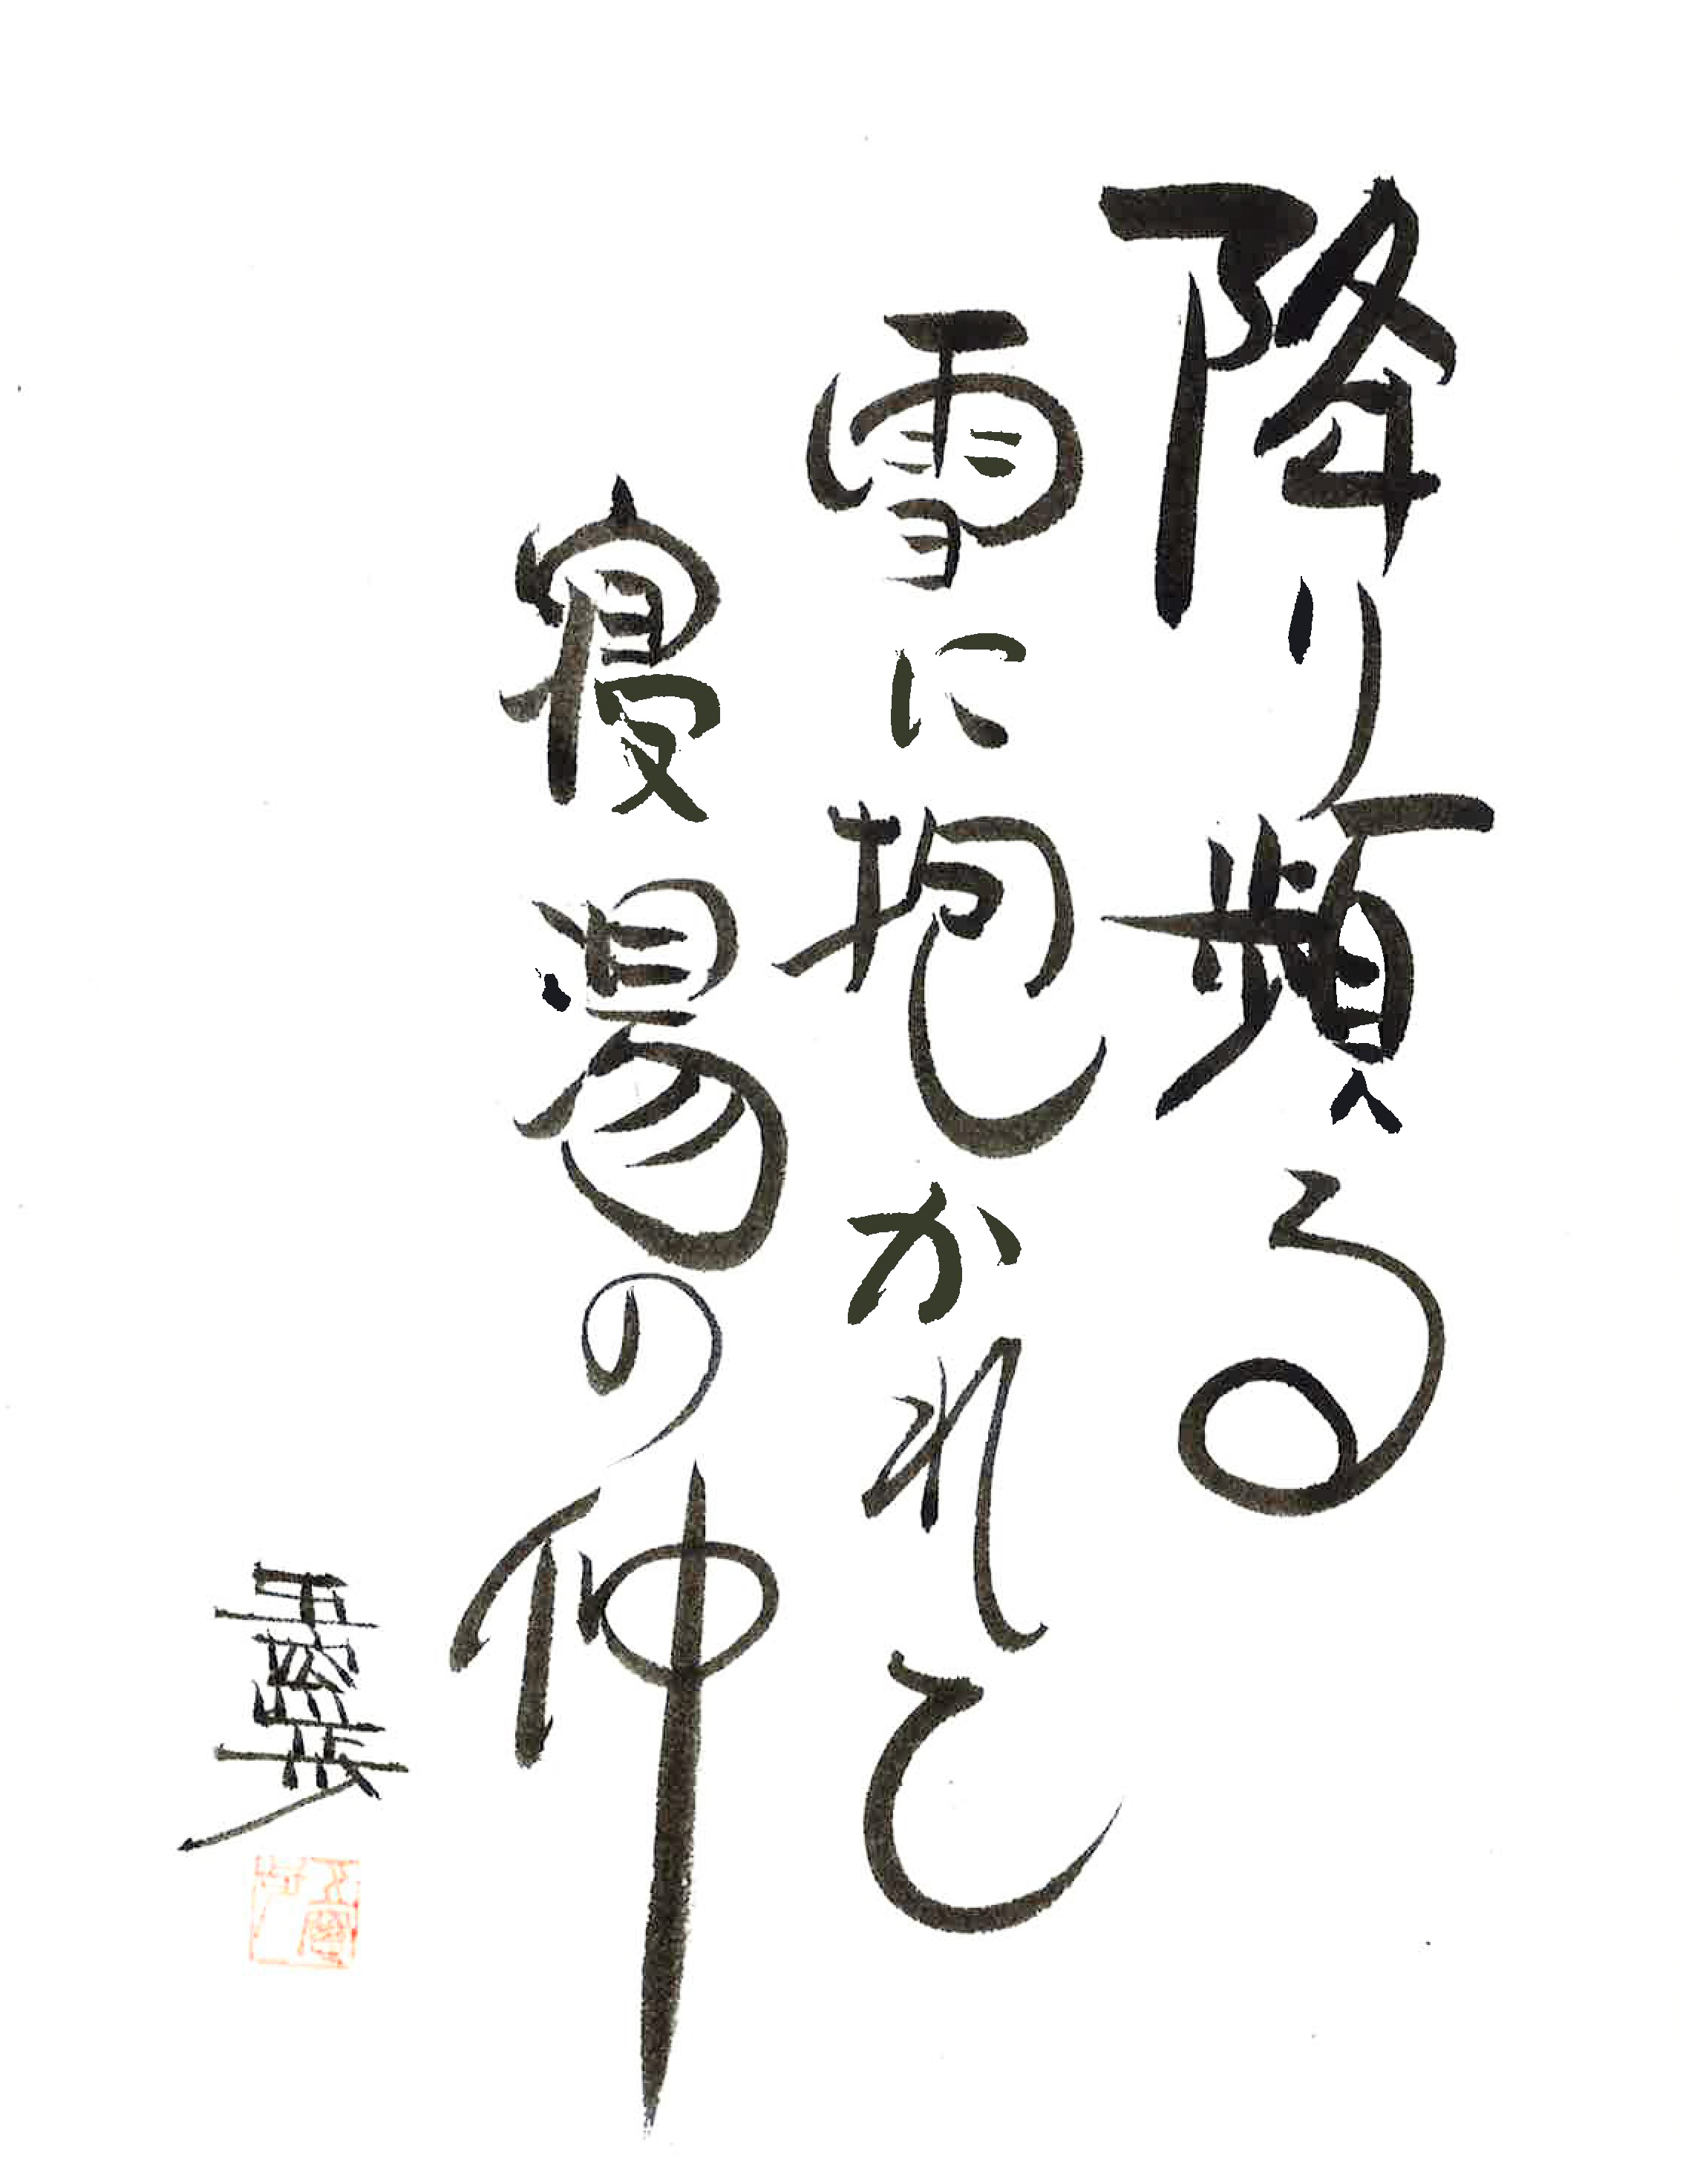 降り頻る
雪に抱かれて
寝湯の仲